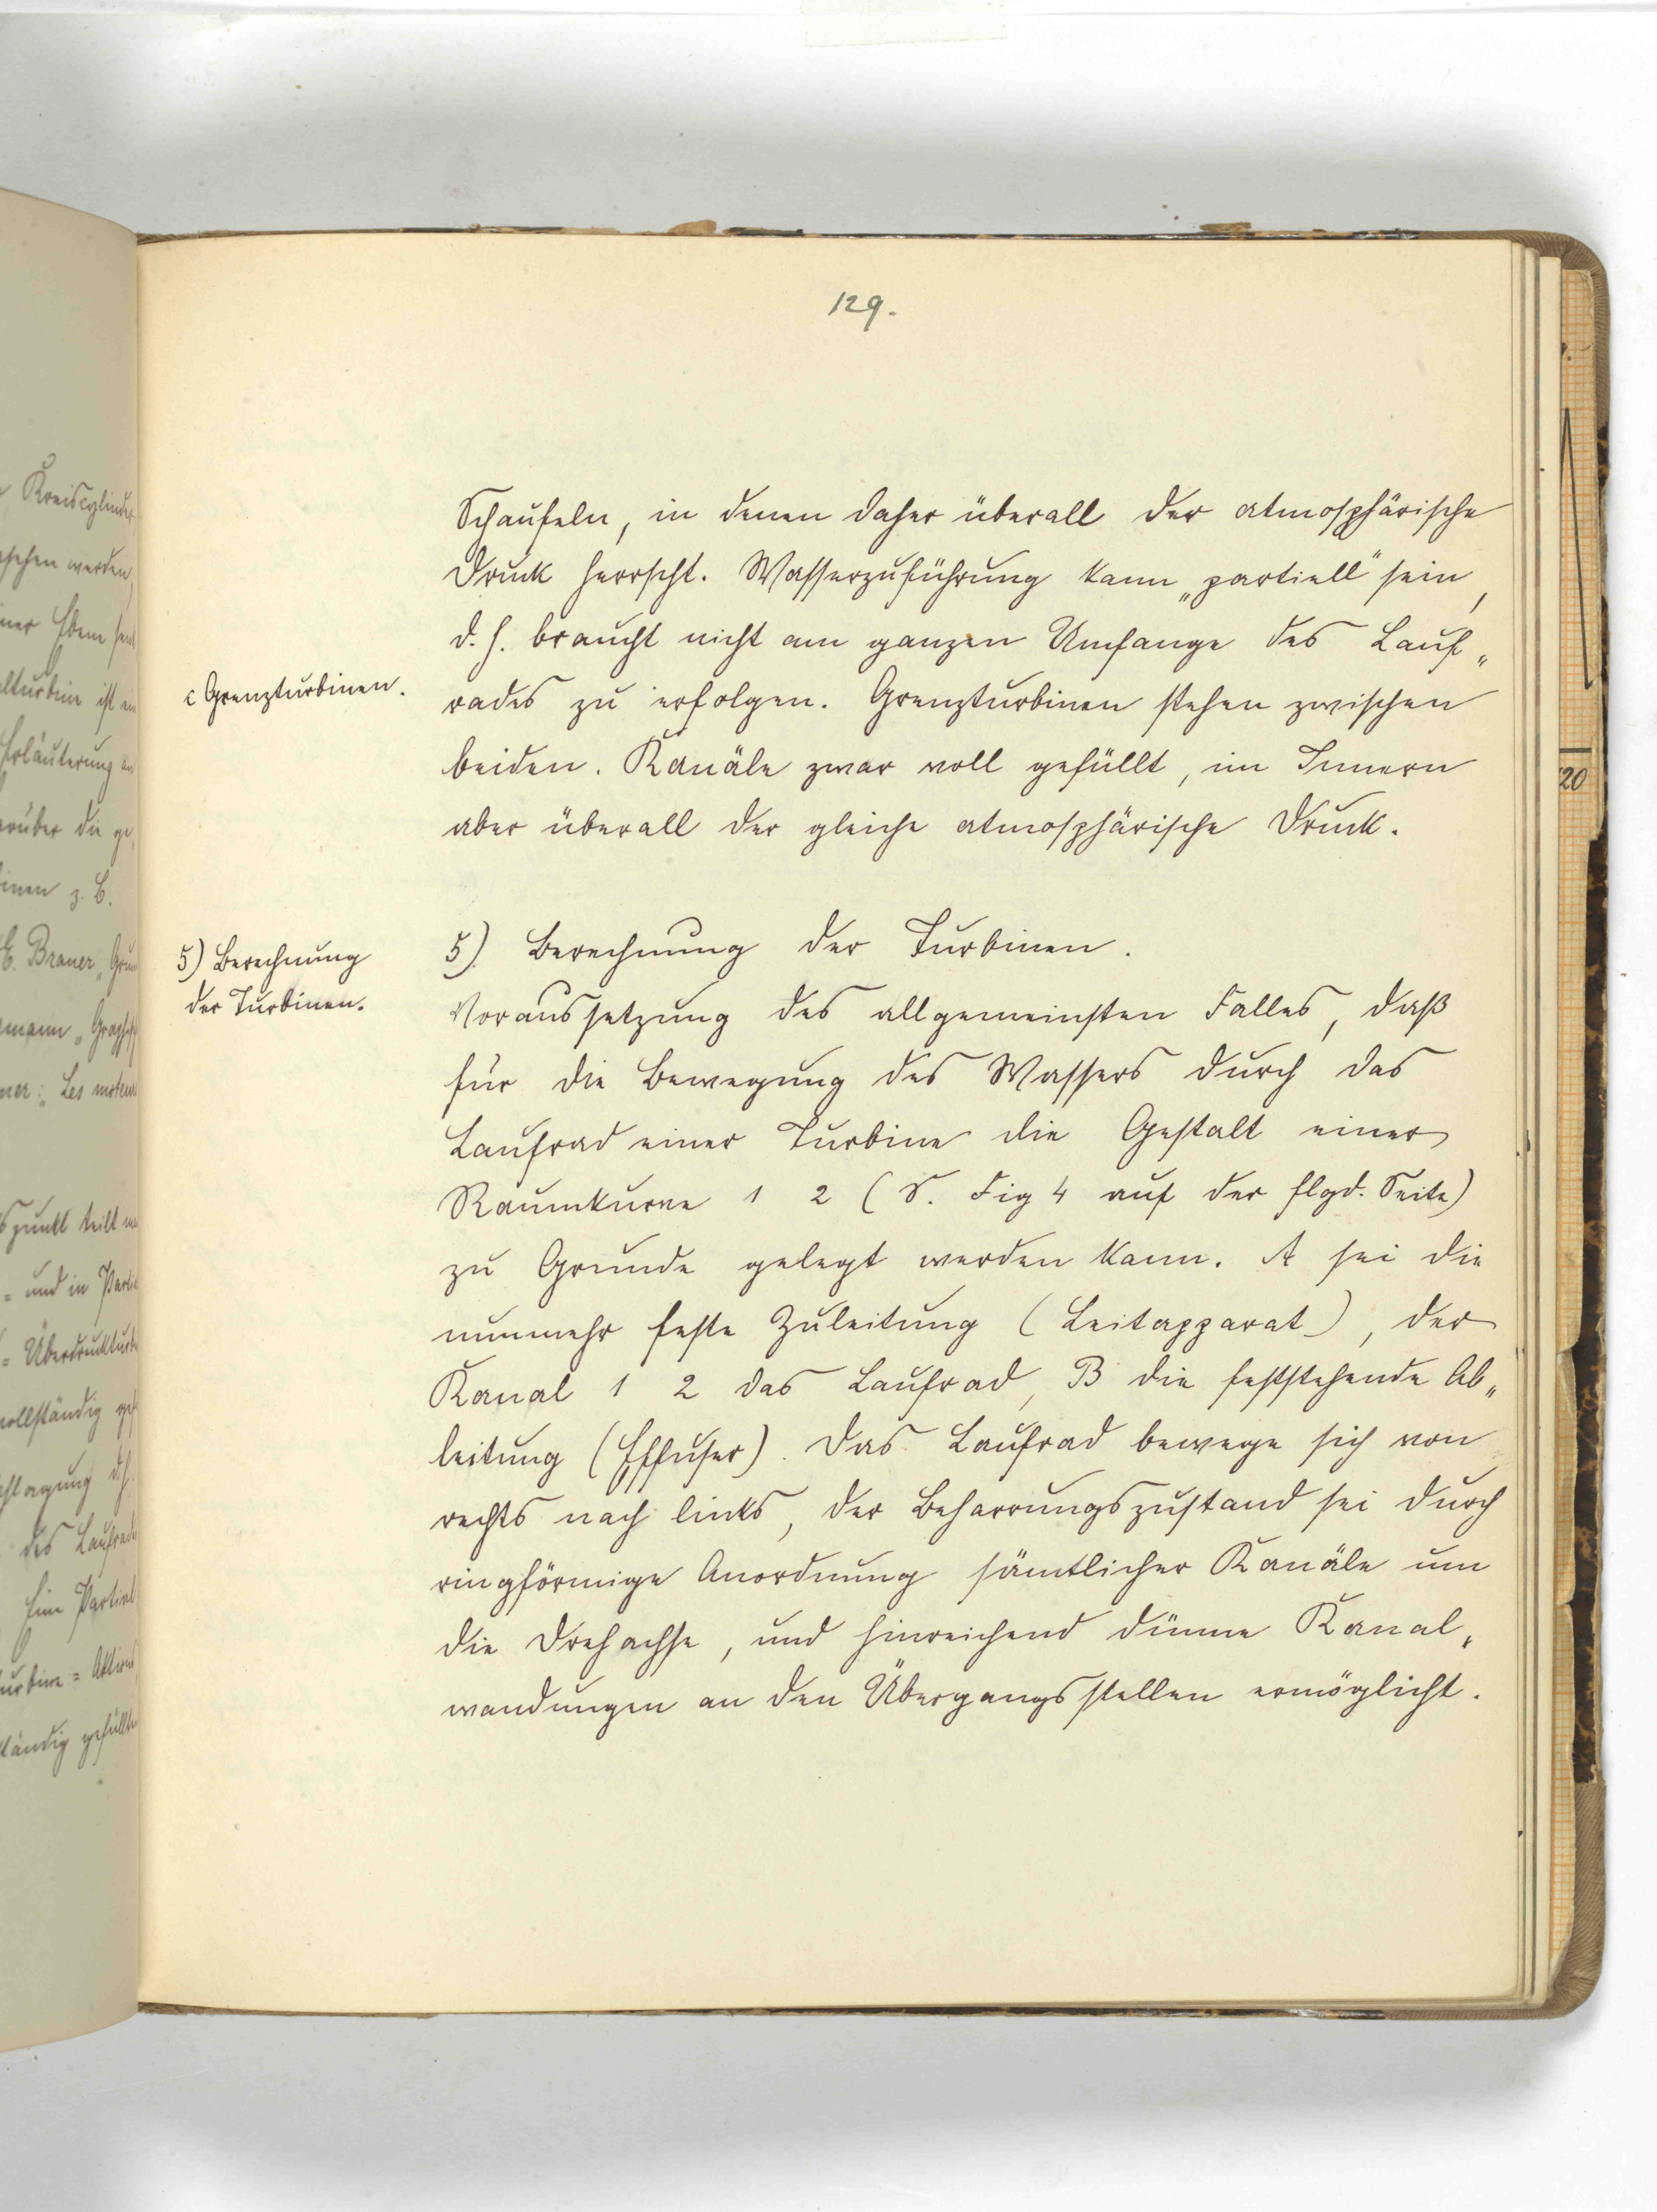 129.
Schaufeln, in denen daher überall der atmosphärische
Druck herrscht. Wasserzuführung kann „partiell" sein,
d. h. braucht nicht am ganzen Umfange des Lauf„
c Grenzturbinen.
rades zu erfolgen. Grenzturbinen stehen zwischen
beiden. Kanäle zwar voll gefüllt, im Innern
aber überall der gleiche atmosphärische Druck.
5) Berechnung
der Turbinen.
5) Berechnung der Turbinen.
Voraussetzung des allgemeinsten Falles, daß
für die Bewegung des Wassers durch das
Laufrad einer Turbine die Gestalt einer
Raumkurve 1 2 (S. Fig 4 auf der flgd. Seite)
zu Grunde gelegt werden kann. A sei die
nunmehr feste Zuleitung (Leitapparat), der
Kanal 1 2 das Laufrad, B die feststehende Ab„
leitung (Effuser). Das Laufrad bewege sich von
rechts nach links, der Beharrungszustand sei durch
ringförmige Anordnung sämtlicher Kanäle um
die Drehachse, und hinreichend dünne Kanal„
wandungen an den Übergangsstellen ermöglicht.
20
Kreiscylinder
werden,
Ebene
ist
Erläuterung
die
z. B.
E. Brauer „
Les
punkt teilt
= und in
=
vollständig
d. h.
des
Eine
=